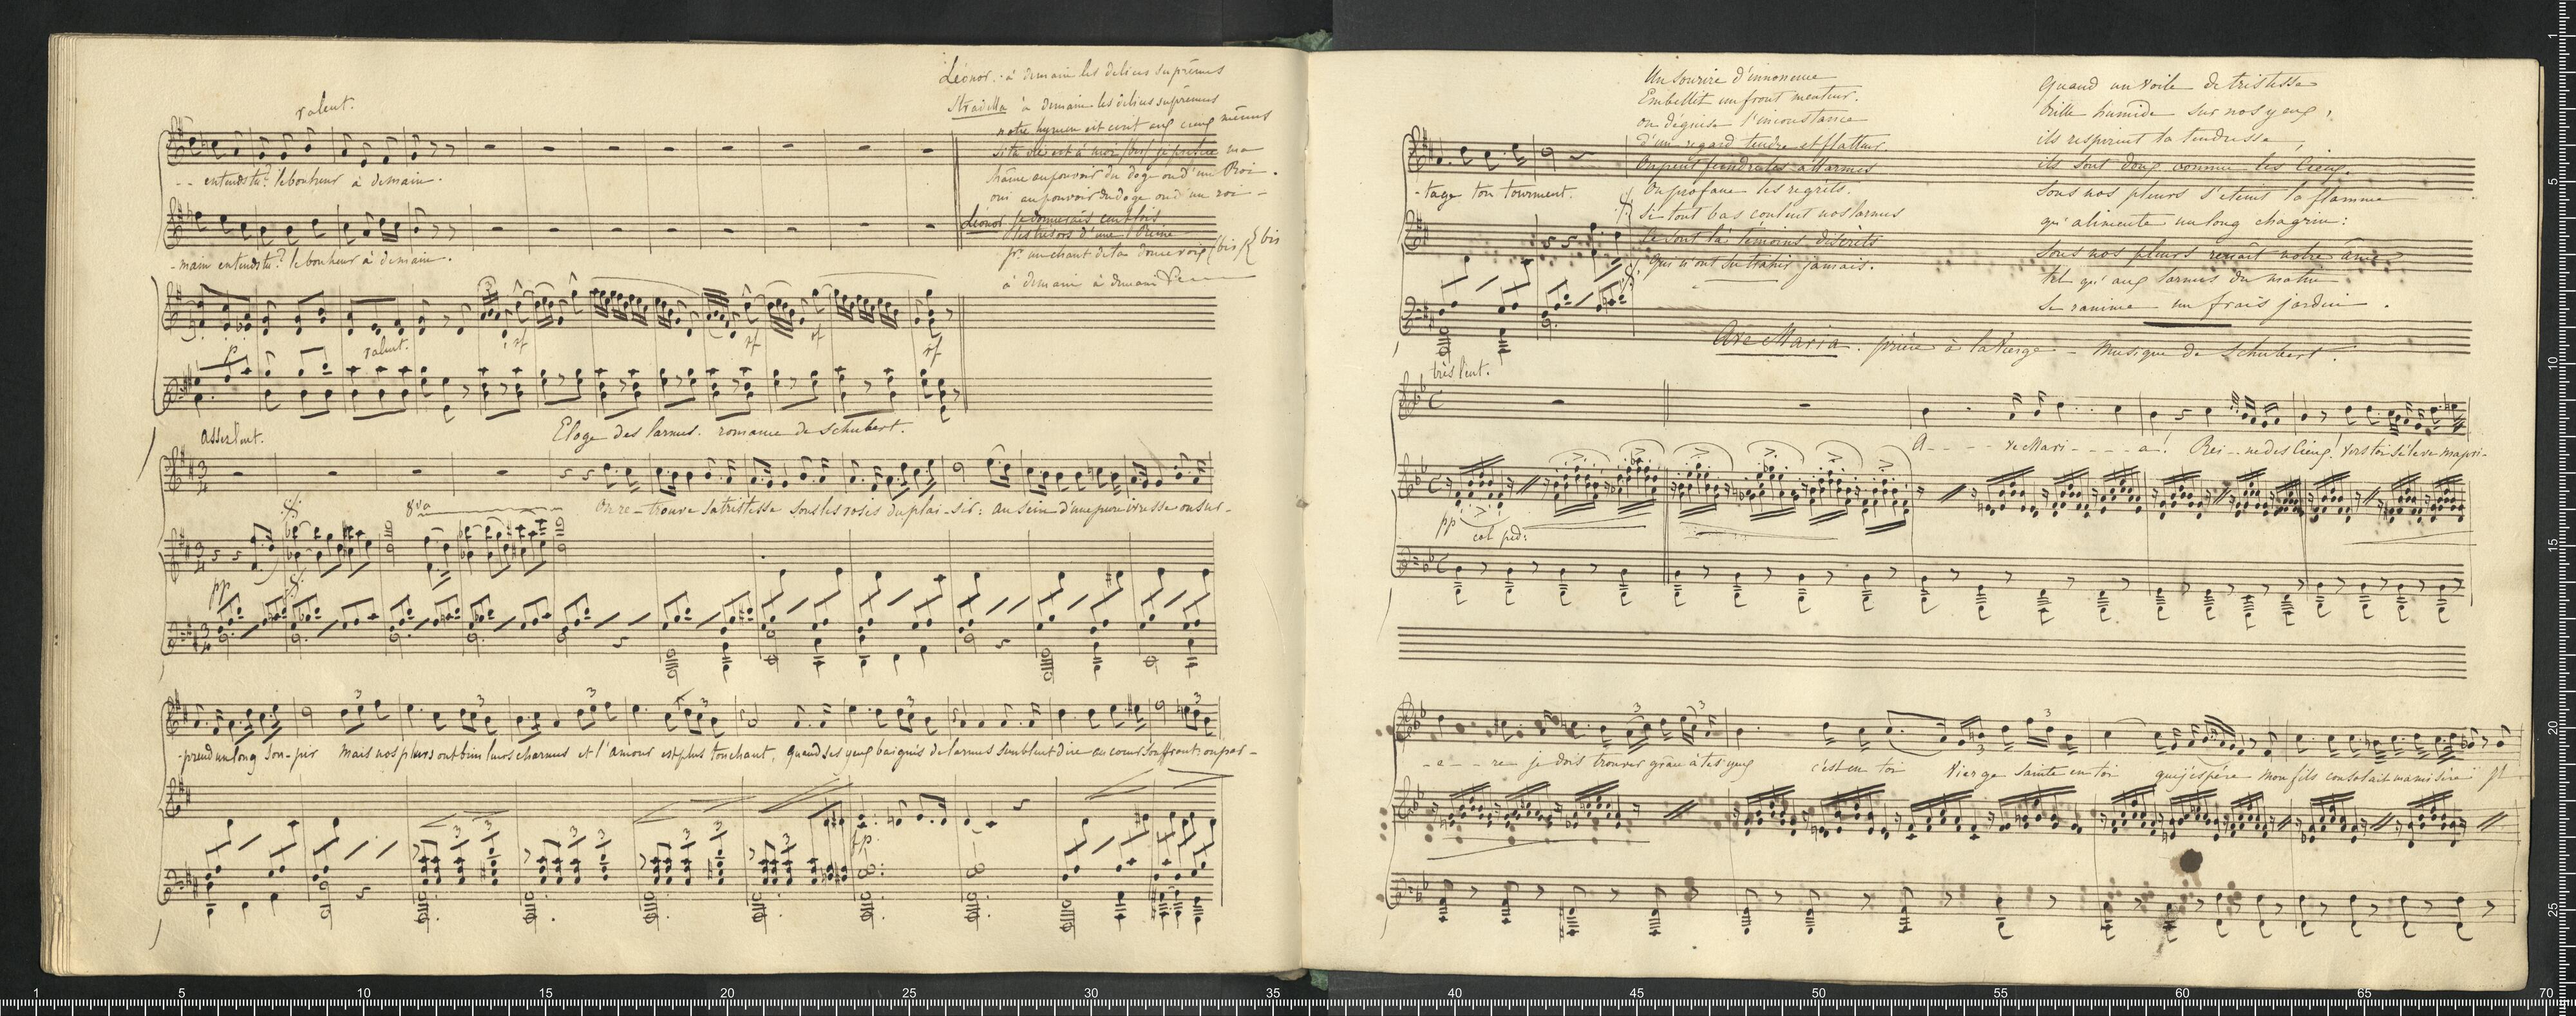 Léonor. à demain les délices suprêmes
Stradella à demain les délices suprêmes
ralent.
notre hymen est écrit aux cieux mêmes
si ta vie est à moi (bis) je préfère ma
chaîne au pouvoir du doge ou d'un Roi.
oui au pouvoir du doge ou d'un roi -
- - entends tu? le bonheur à demain.
Léonor je donnerais cent fois
les trésors d'une Reine
pr. un chant de ta douce voix (bis) bis
à demain à demain
- main entends tu? le bonheur à demain.
3
p
ralent.
sf
sf
sf
sf
assez lent.
Eloge des larmes. romance de Schubert.
On re - trouve sa tristesse sous les roses du plai - sir: au sein d'une pure ivresse on sur -
8va
pp
3 3 3 3 3
- prend un long sou - pir mais nos pleurs ont bien leurs charmes et l'amour est plus touchant, quand ses yeux baignés de larmes semblent dire au coeur souffrant on par -
3 3 3 3 3 3 3
fp.
Un sourire d'innocence
Embellit un front menteur.
on déguise l'inconstance
d'un regard tendre et flatteur.
On peut feindre les allarmes
On profane les regrets.
si tout bas coulent nos larmes
ce sont là témoins discrets
qui n'ont su trahir jamais.
Quand un voile de tristesse
brille humide sur nos yeux,
ils respirent la tendresse,
ils sont doux comme les cieux.
Sous nos pleurs s'éteint la flamme
qu'alimente un long chagrin:
Sous nos pleurs renaît notre âme
tel qu'aux larmes du matin
se ranime un frais jardin.
- tage ton tourment.
Ave Maria. prière à la Vierge - Musique de Schubert.
très lent.
A - - - - ve Mari - - - - a! Rei - - ne des cieux! vers toi s'élève ma pri -
pp
col ped:
3 3 3 3
- è - - re je dois trouver grâce à tes yeux c'est en toi Vierge sainte en toi que j'espère mon fils consolait ma misère